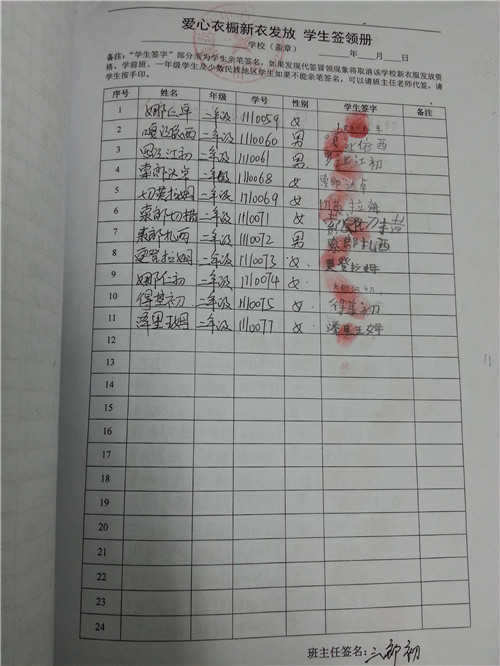 爱心衣橱新衣发放 学生签领册
学校（盖章） 年 月 日
备注：“学生签字”部分须为学生亲笔签名，如果发现代签冒领现象将取消该学校新衣服发放资
格。学前班、一年级学生及少数民族地区学生如果不能亲笔签名，可以请班主任老师代签，请
学生按手印。
序号 姓名 年级 学号 性别 学生签字 备注
1 二年级 1110059 女
2 二年级 1110060 男
3 江初 二年级 1110061 男 江初
4 二年级 1110068 女
5 切英拉姆 二年级 1110069 女 拉姆
6 二年级 1110071 女
7 索郎扎西 二年级 1110072 男 索郎扎西
8 拉姆 二年级 1110073 女 拉姆
9 娜仁初 二年级 1110074 女
10 得基初 二年级 1110075 女 得基初
11 泽里王姆 二年级 1110077 女 泽里王姆
12
13
14
15
16
17
18
19
20
21
22
23
24
班主任签名：